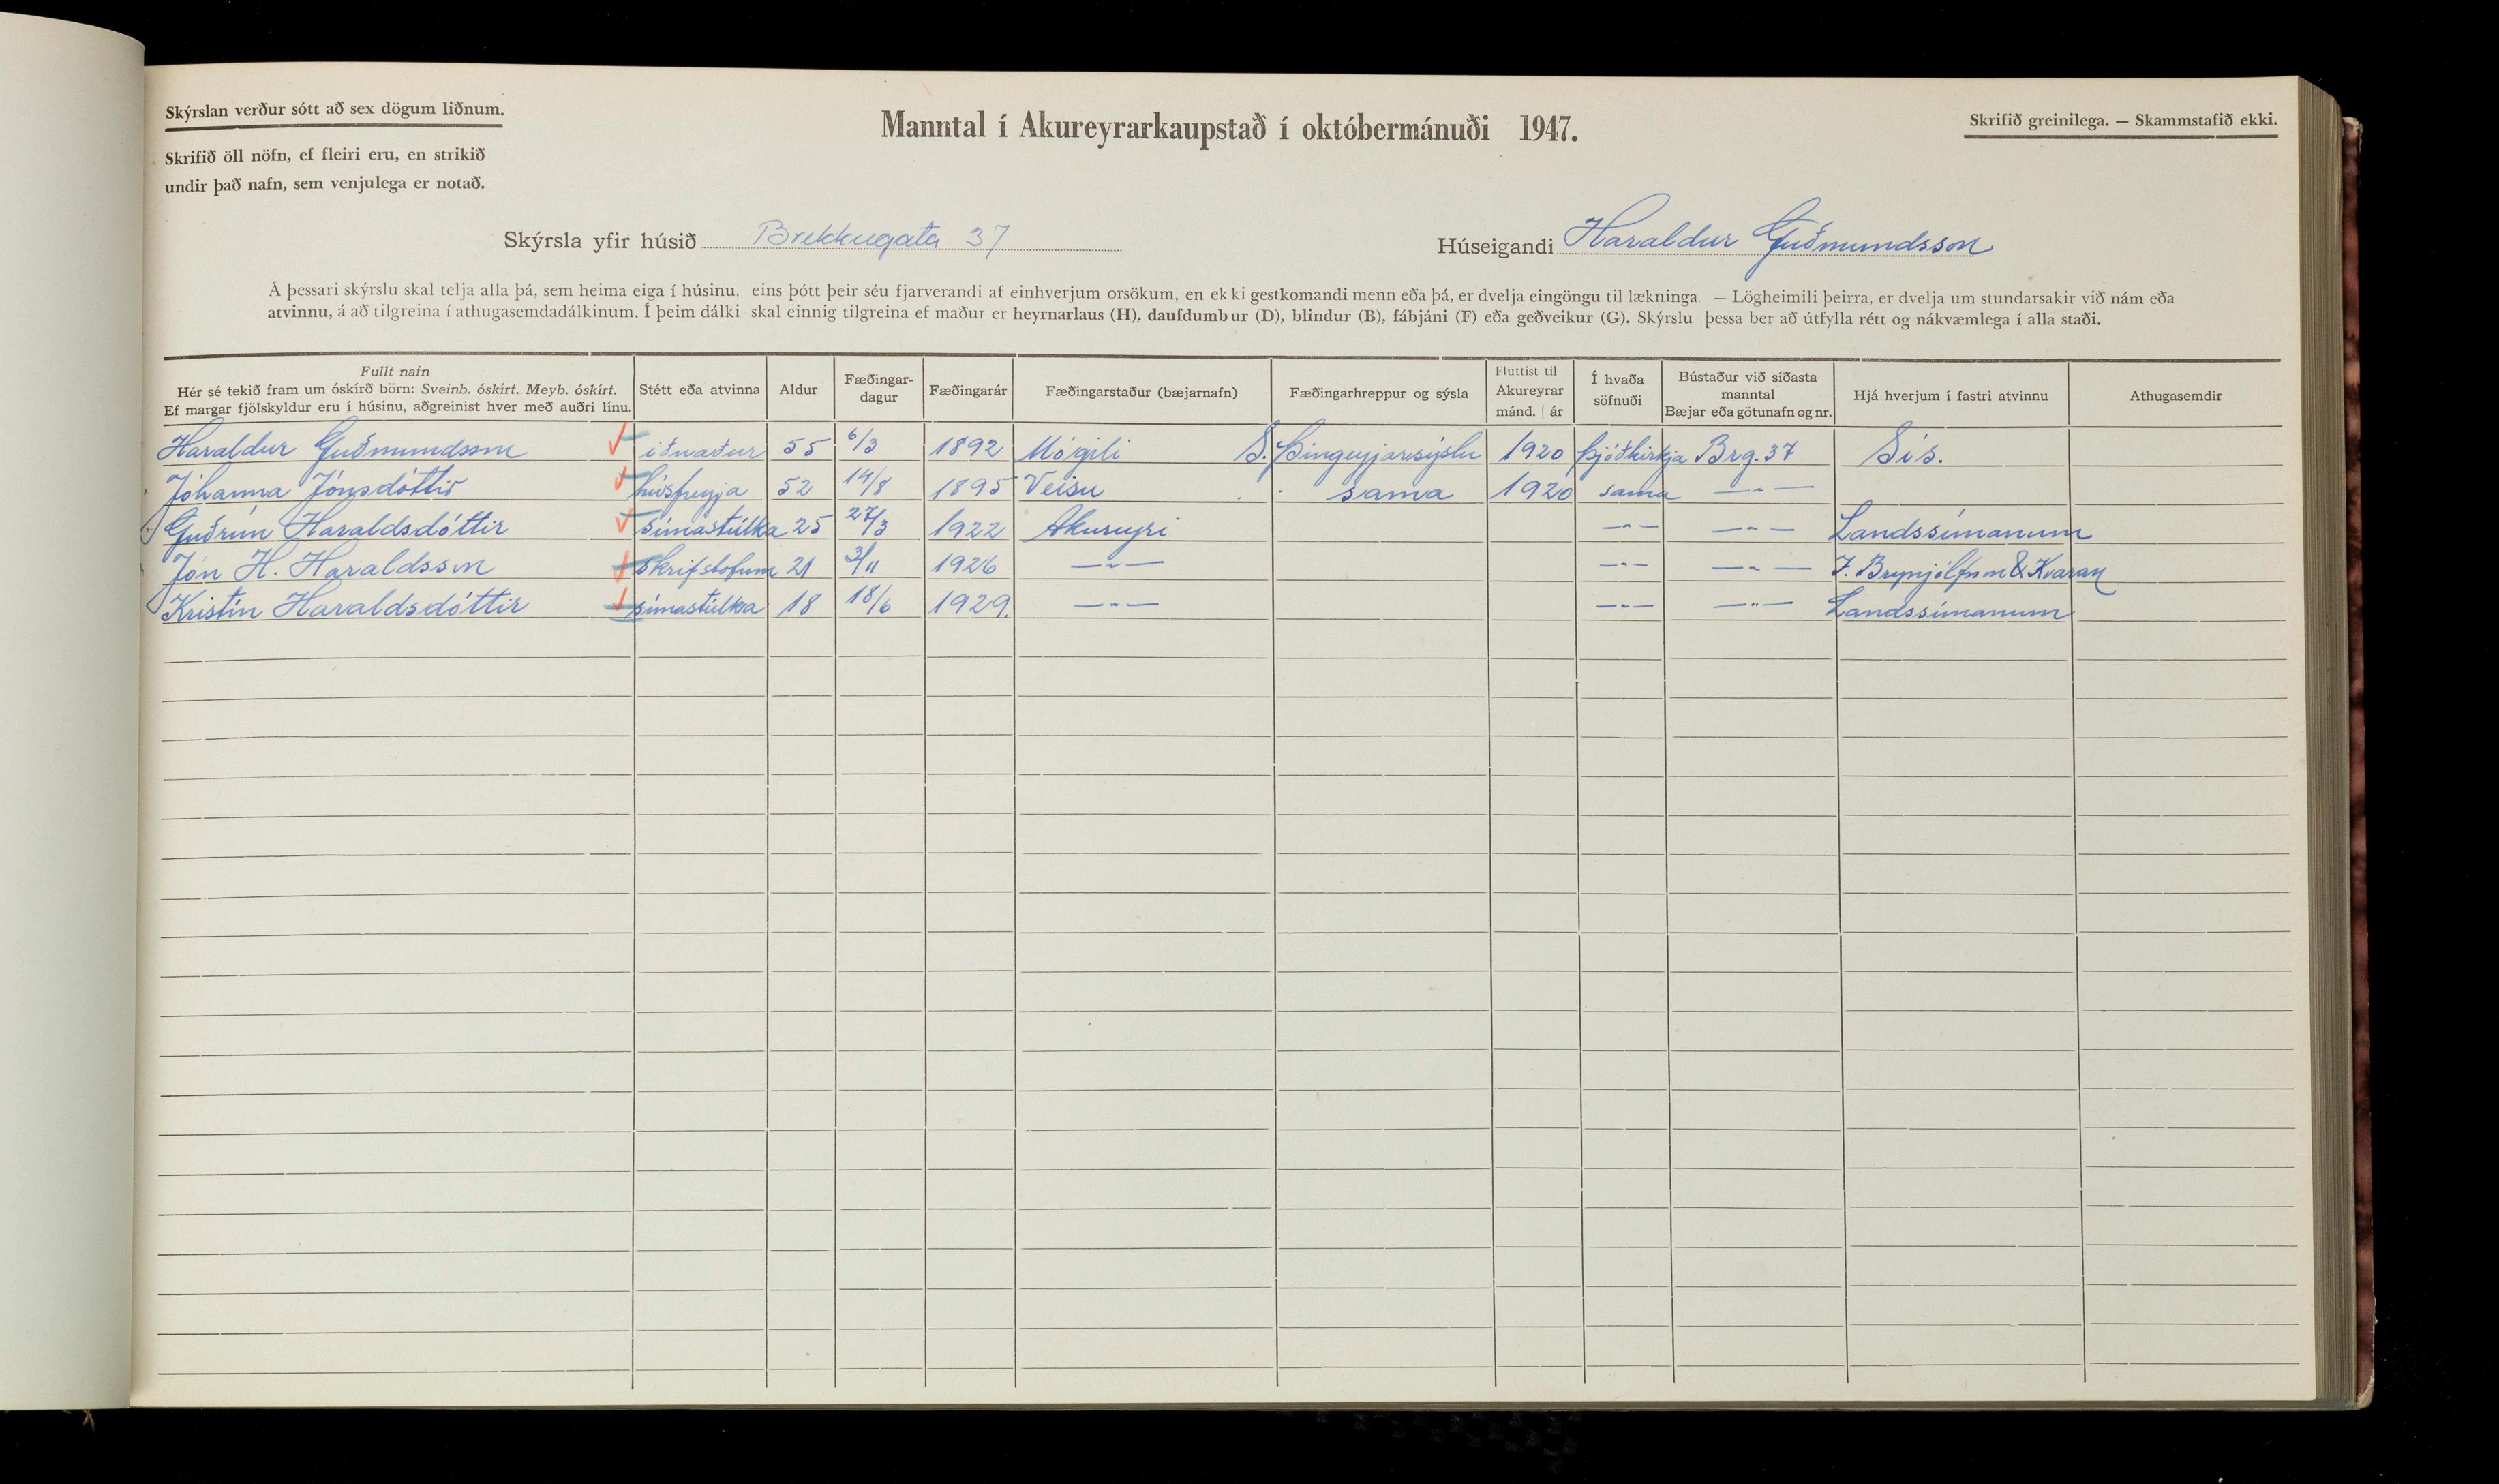 Skýrslan verður sótt að sex dögum liðnum.
Manntal í Akureyrarkaupstað í októbermánuði 1947.
Skrifið greinilega. — Skammstafið ekki.
Skrifið öll nöfn, ef fleiri eru, en strikið
undir það nafn, sem venjulega er notað.
Skýrsla yfir húsið Brekkugata 37
Húseigandi Haraldur Guðmundsson
Á þessari skýrslu skal telja alla þá, sem heima eiga í húsinu, eins þótt þeir séu fjarverandi af einhverjum orsökum, en ekki gestkomandi menn eða þá, er dvelja eingöngu til lækninga. — Lögheimili þeirra, er dvelja um stundarsakir við nám eða
atvinnu, á að tilgreina í athugasemdadálkinum. Í þeim dálki skal einnig tilgreina ef maður er heyrnarlaus (H), daufdumbur (D), blindur (B), fábjáni (F) eða geðveikur (G). Skýrslu þessa ber að útfylla rétt og nákvæmlega í alla staði.
Fullt nafn
Hér sé tekið fram um óskírð börn: Sveinb. óskírt. Meyb. óskírt.
Ef margar fjölskyldur eru í húsinu, aðgreinist hver með auðri línu.
Stétt eða atvinna
Aldur
Fæðingar-
dagur
Fæðingarár
Fæðingarstaður (bæjarnafn)
Fæðingarhreppur og sýsla
Fluttist til
Akureyrar
mánd. | ár
Í hvaða
söfnuði
Bústaður við síðasta
manntal
Bæjar eða götunafn og nr.
Hjá hverjum í fastri atvinnu
Athugasemdir
Haraldur Guðmundsson ✓ iðnaður 55 6/3 1892 Mógili S. Þingeyjarsýslu 1920 Þjóðkirkja Brg. 37 Sís.
Jóhanna Jónsdóttir ✓ húsfreyja 52 14/8 1895 Veisu sama 1920 sama —"—
Guðrún Haraldsdóttir ✓ símastúlka 25 27/3 1922 Akureyri —"— —"— Landssímanum
Jón H. Haraldsson ✓ skrifstofum 21 3/11 1926 —"— —"— —"— J. Brynjólfsson & Kvaran
Kristín Haraldsdóttir ✓ símastúlka 18 18/6 1929. —"— —"— —"— Landssímanum